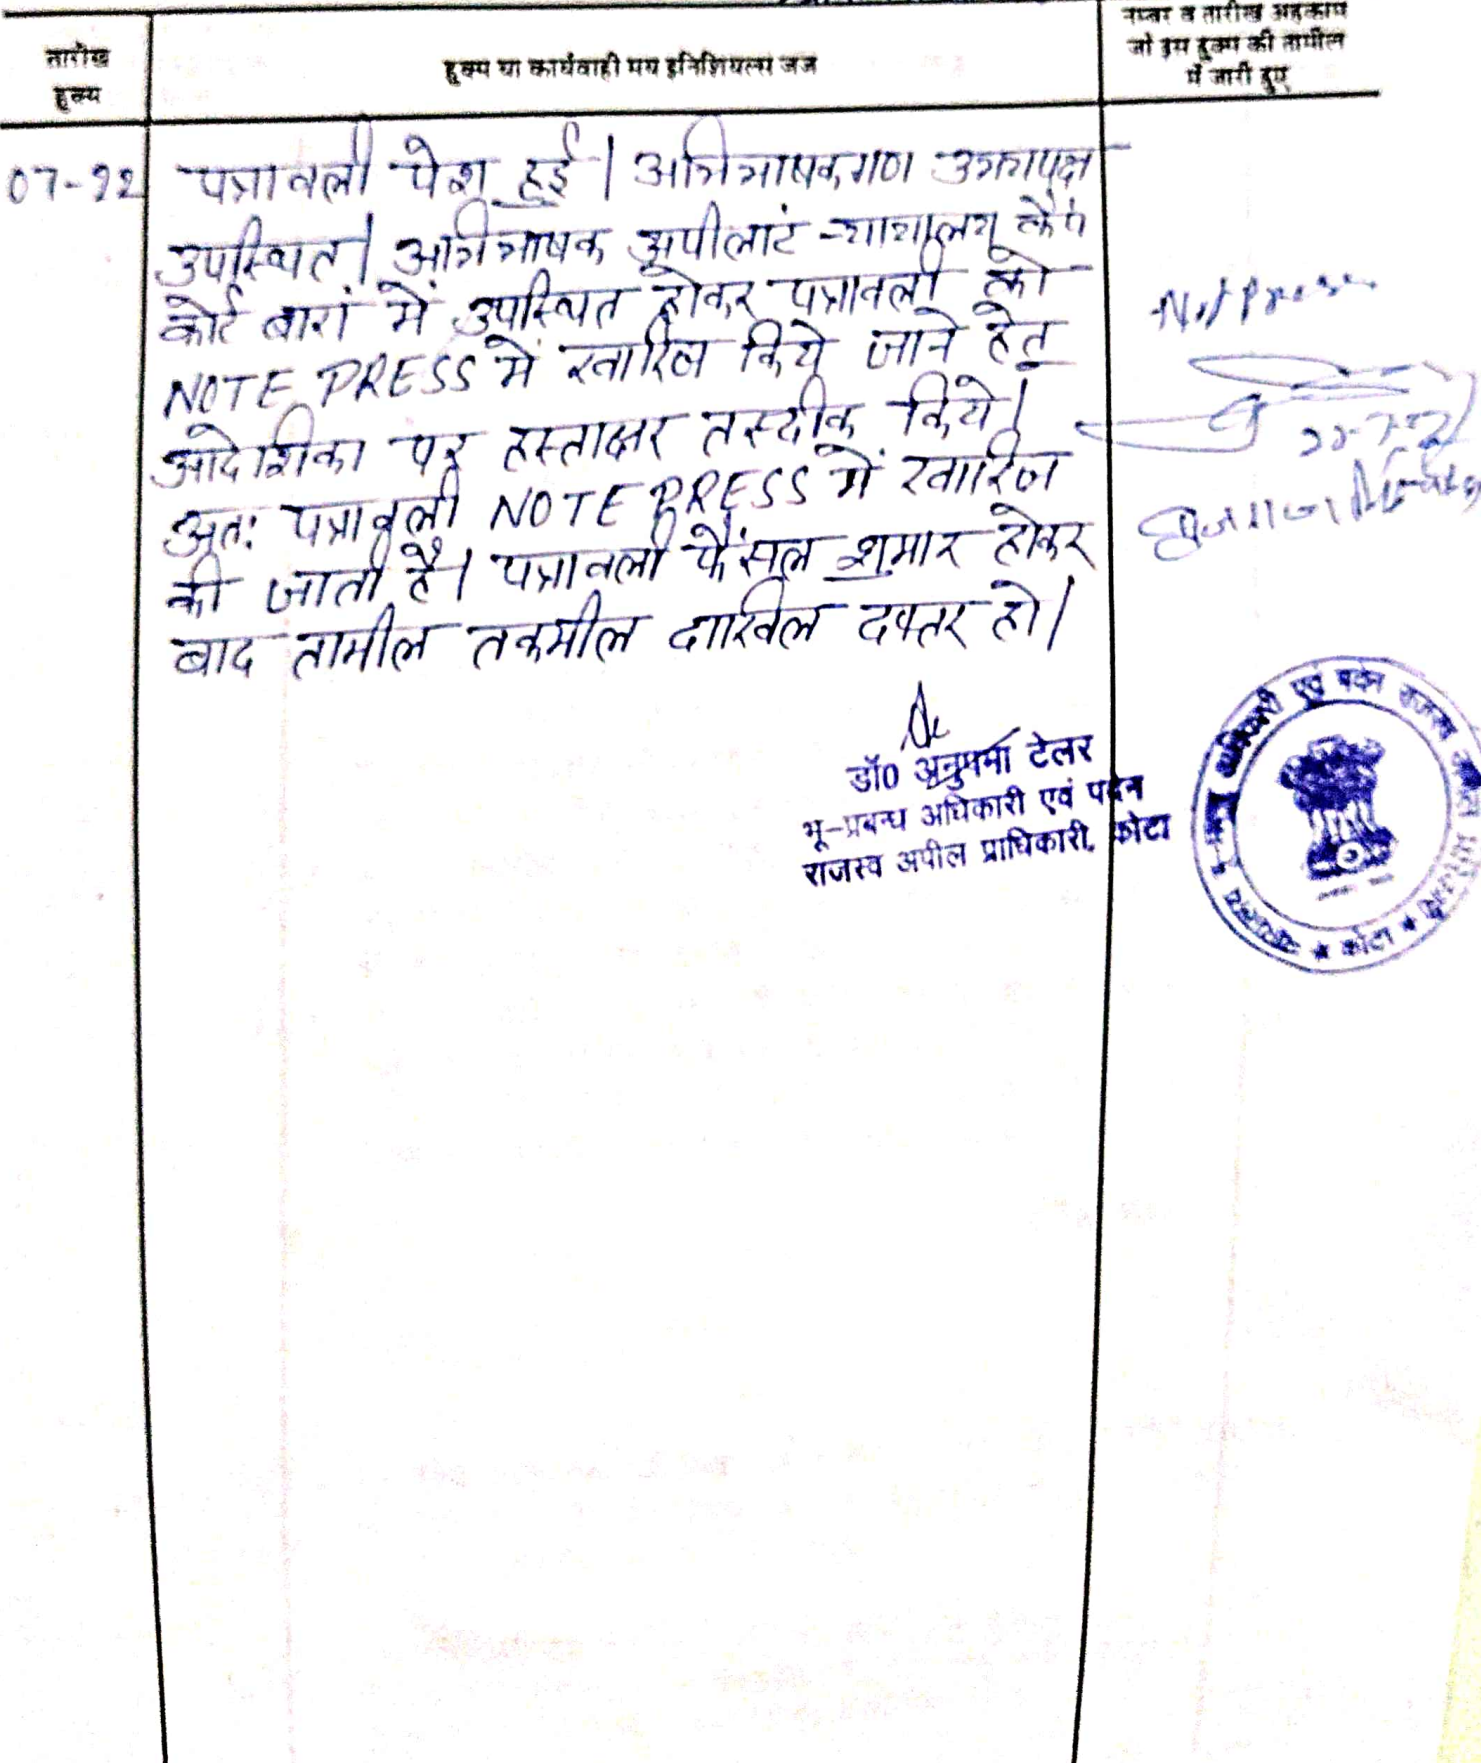 तारीख
हुक्म
हुक्म या कार्यवाही मय इनिशियल्स जज
नम्बर व तारीख अहकाम
जो इस हुक्म की तामील
में जारी हुए
07-22
पत्रावली पेश हुई। अभिभाषकगण उभयपक्ष
उपस्थित। अभिभाषक अपीलांट न्यायालय कैंप
कोर्ट बारां में उपस्थित होकर पत्रावली को
NOTE PRESS में खारिज किये जाने हेतु
आदेशिका पर हस्ताक्षर तस्दीक किये।
अतः पत्रावली NOTE PRESS में खारिज
की जाती है। पत्रावली फैंसल शुमार होकर
बाद तामील तकमील दाखिल दफ्तर हो।
Not Press
22-7-22
डॉ0 अनुपमा टेलर
भू-प्रबन्ध अधिकारी एवं पदेन
राजस्व अपील प्राधिकारी, कोटा
अधिकारी एवं पदेन राजस्व अपील
★ कोटा ★